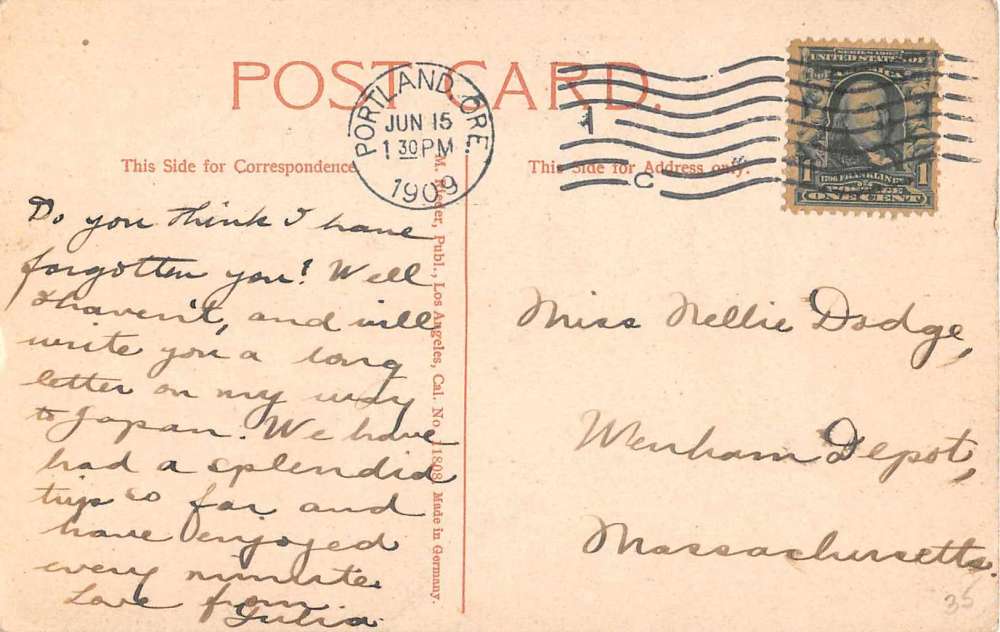 POST CARD.
PORTLAND, ORE.
JUN 15
1 30 PM
1909
1
C
SERIES 1902
UNITED STATES OF
AMERICA
1 FRANKLIN 1
POSTAGE
ONE CENT
This Side for Correspondence
This Side for Address only.
Do you think I have
forgotten you? Well
I haven't, and will
write you a long
letter on my way
to Japan. We have
had a splendid
trip so far and
have enjoyed
every minute.
Love from
Julia.
M. Rieder, Publ., Los Angeles, Cal. No. 11808. Made in Germany.
Miss Nellie Dodge,
Wenham Depot,
Massachusetts.
35